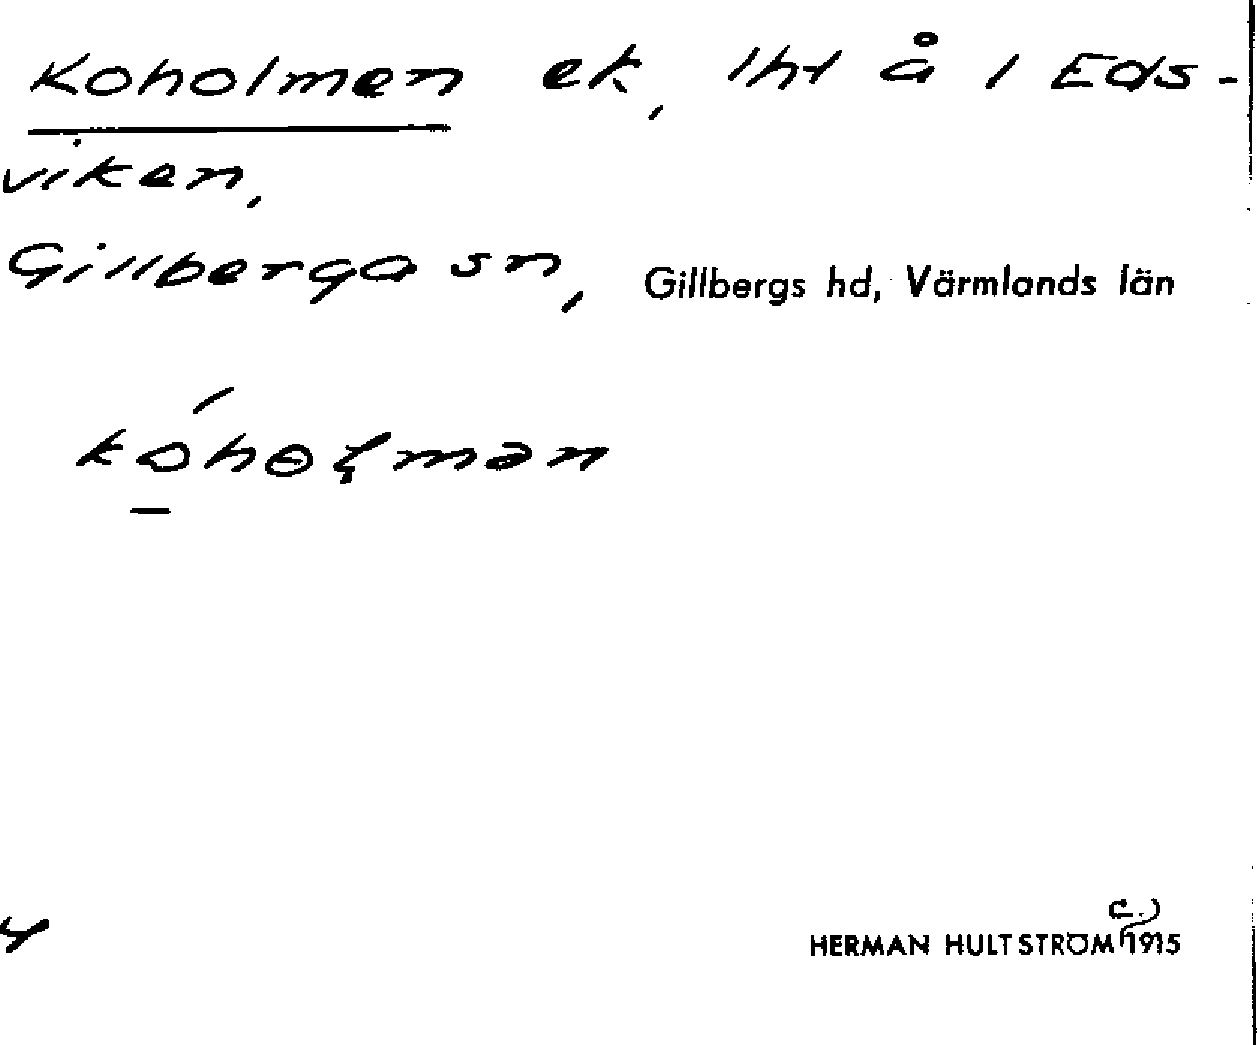 Koholmen ek, lht å i Eds-
viken,
Gillberga sn, Gillbergs hd, Värmlands län
kóholman
4
c.)
HERMAN HULTSTRÖM 1915